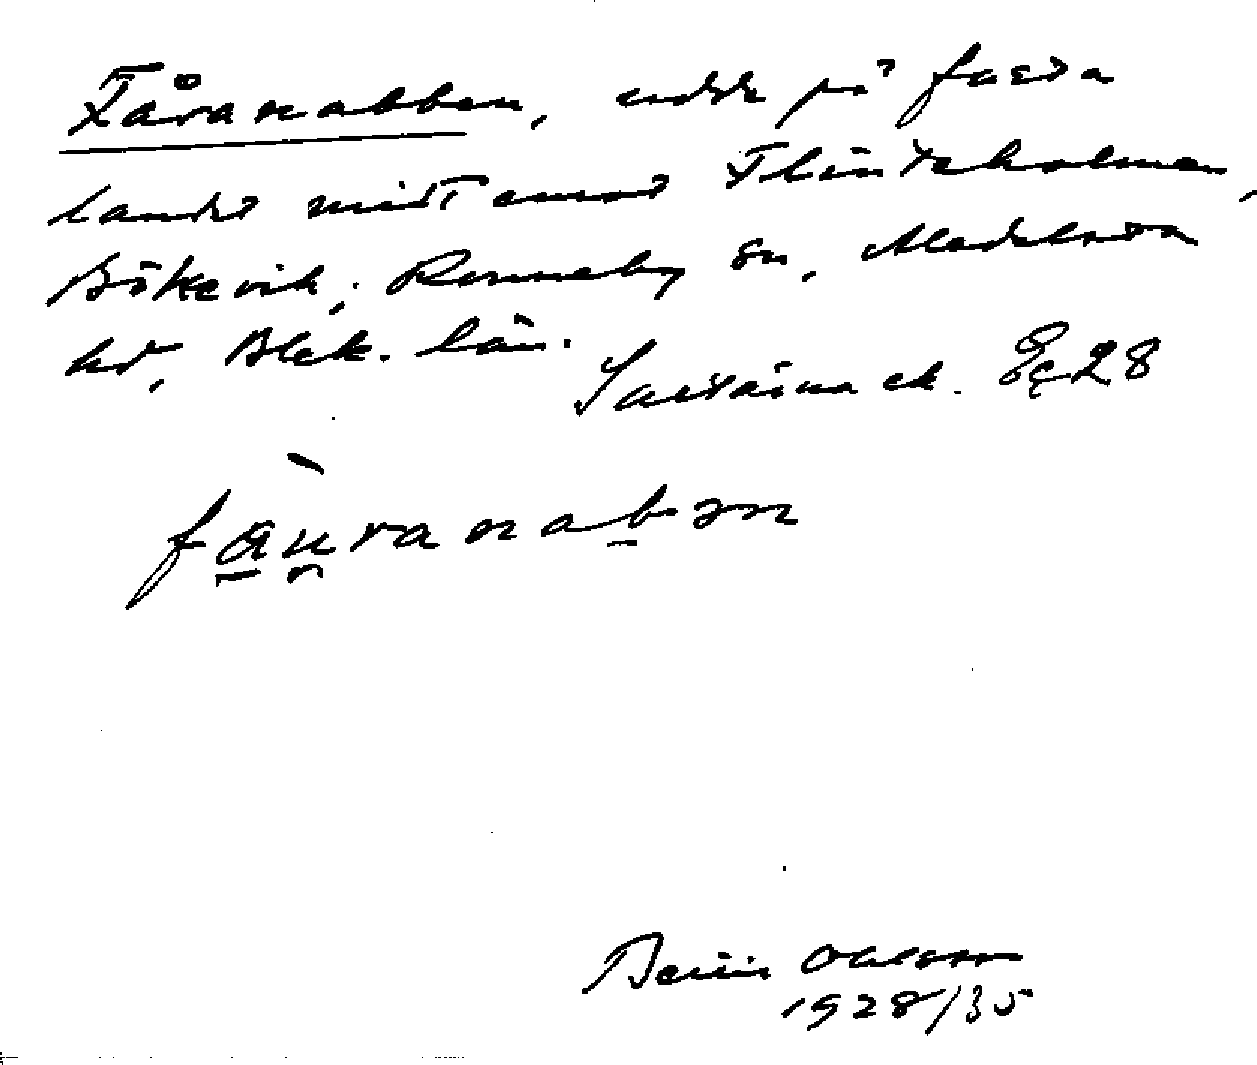 Fåranabben, udde på fasta
landet mitt emot Flinteholmen,
Bökevik, Ronneby sn, Medelsta
hd, Blek. län.
ek. Bg 28
fåuranabən
Bertil Ohlsson
1928/35